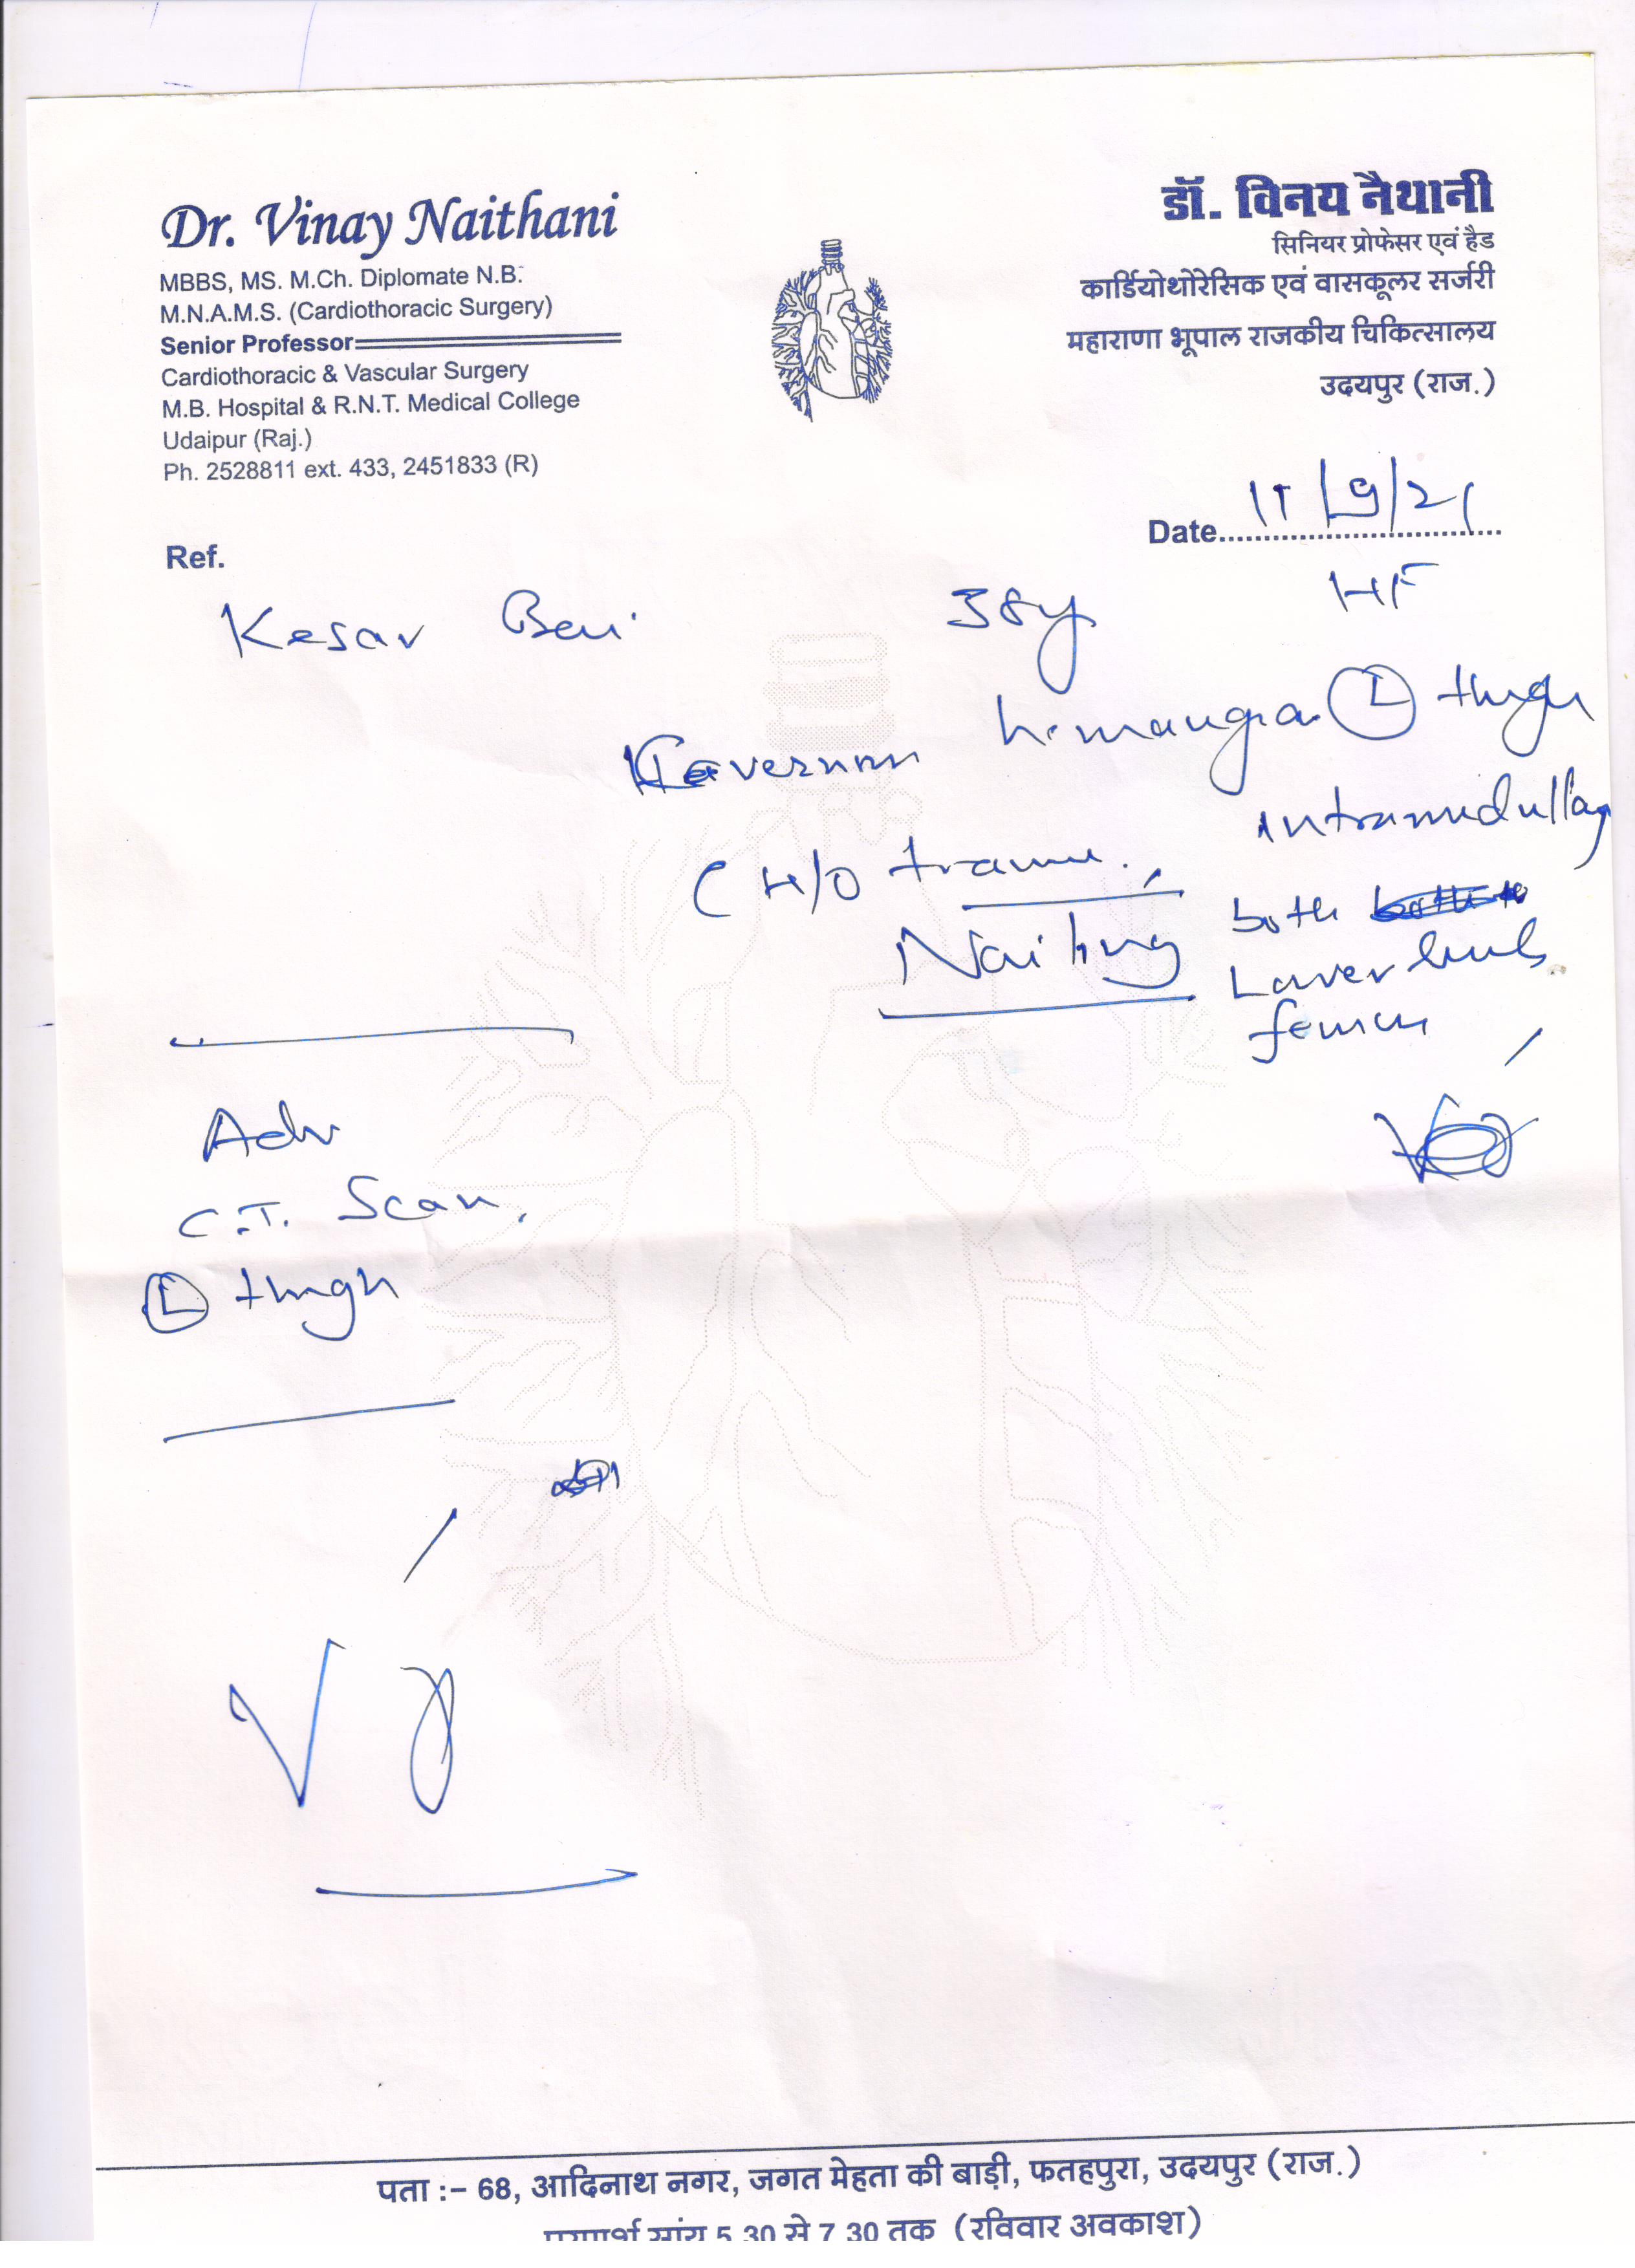 Dr. Vinay Naithani
MBBS, MS. M.Ch. Diplomate N.B.
M.N.A.M.S. (Cardiothoracic Surgery)
Senior Professor
Cardiothoracic & Vascular Surgery
M.B. Hospital & R.N.T. Medical College
Udaipur (Raj.)
Ph. 2528811 ext. 433, 2451833 (R)
डॉ. विनय नैथानी
सिनियर प्रोफेसर एवं हैड
कार्डियोथोरेसिक एवं वासकूलर सर्जरी
महाराणा भूपाल राजकीय चिकित्सालय
उदयपुर (राज.)
Date /9/21
Ref.
Kesar 38y HF
hemangia (L) thigh
intramedullary
(H/O
Nailing both
Lower
femur
Adv
C.T. Scan,
(L) thigh
पता :– 68, आदिनाथ नगर, जगत मेहता की बाड़ी, फतहपुरा, उदयपुर (राज.)
परामर्श सांय 5.30 से 7.30 तक (रविवार अवकाश)